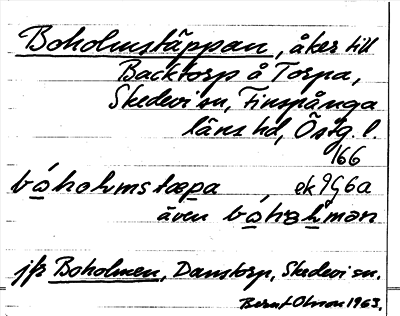 Boholmstäppan, åker till
Backtorp å Torpa,
Skedevi sn, Finspånga
läns hd, Östg. l.
166
bóholmstæpa, ek 9G6a
även bóhålmən
jfr Boholmen, Danstorp, Skedevi sn.
Bernt Olsson 1963.